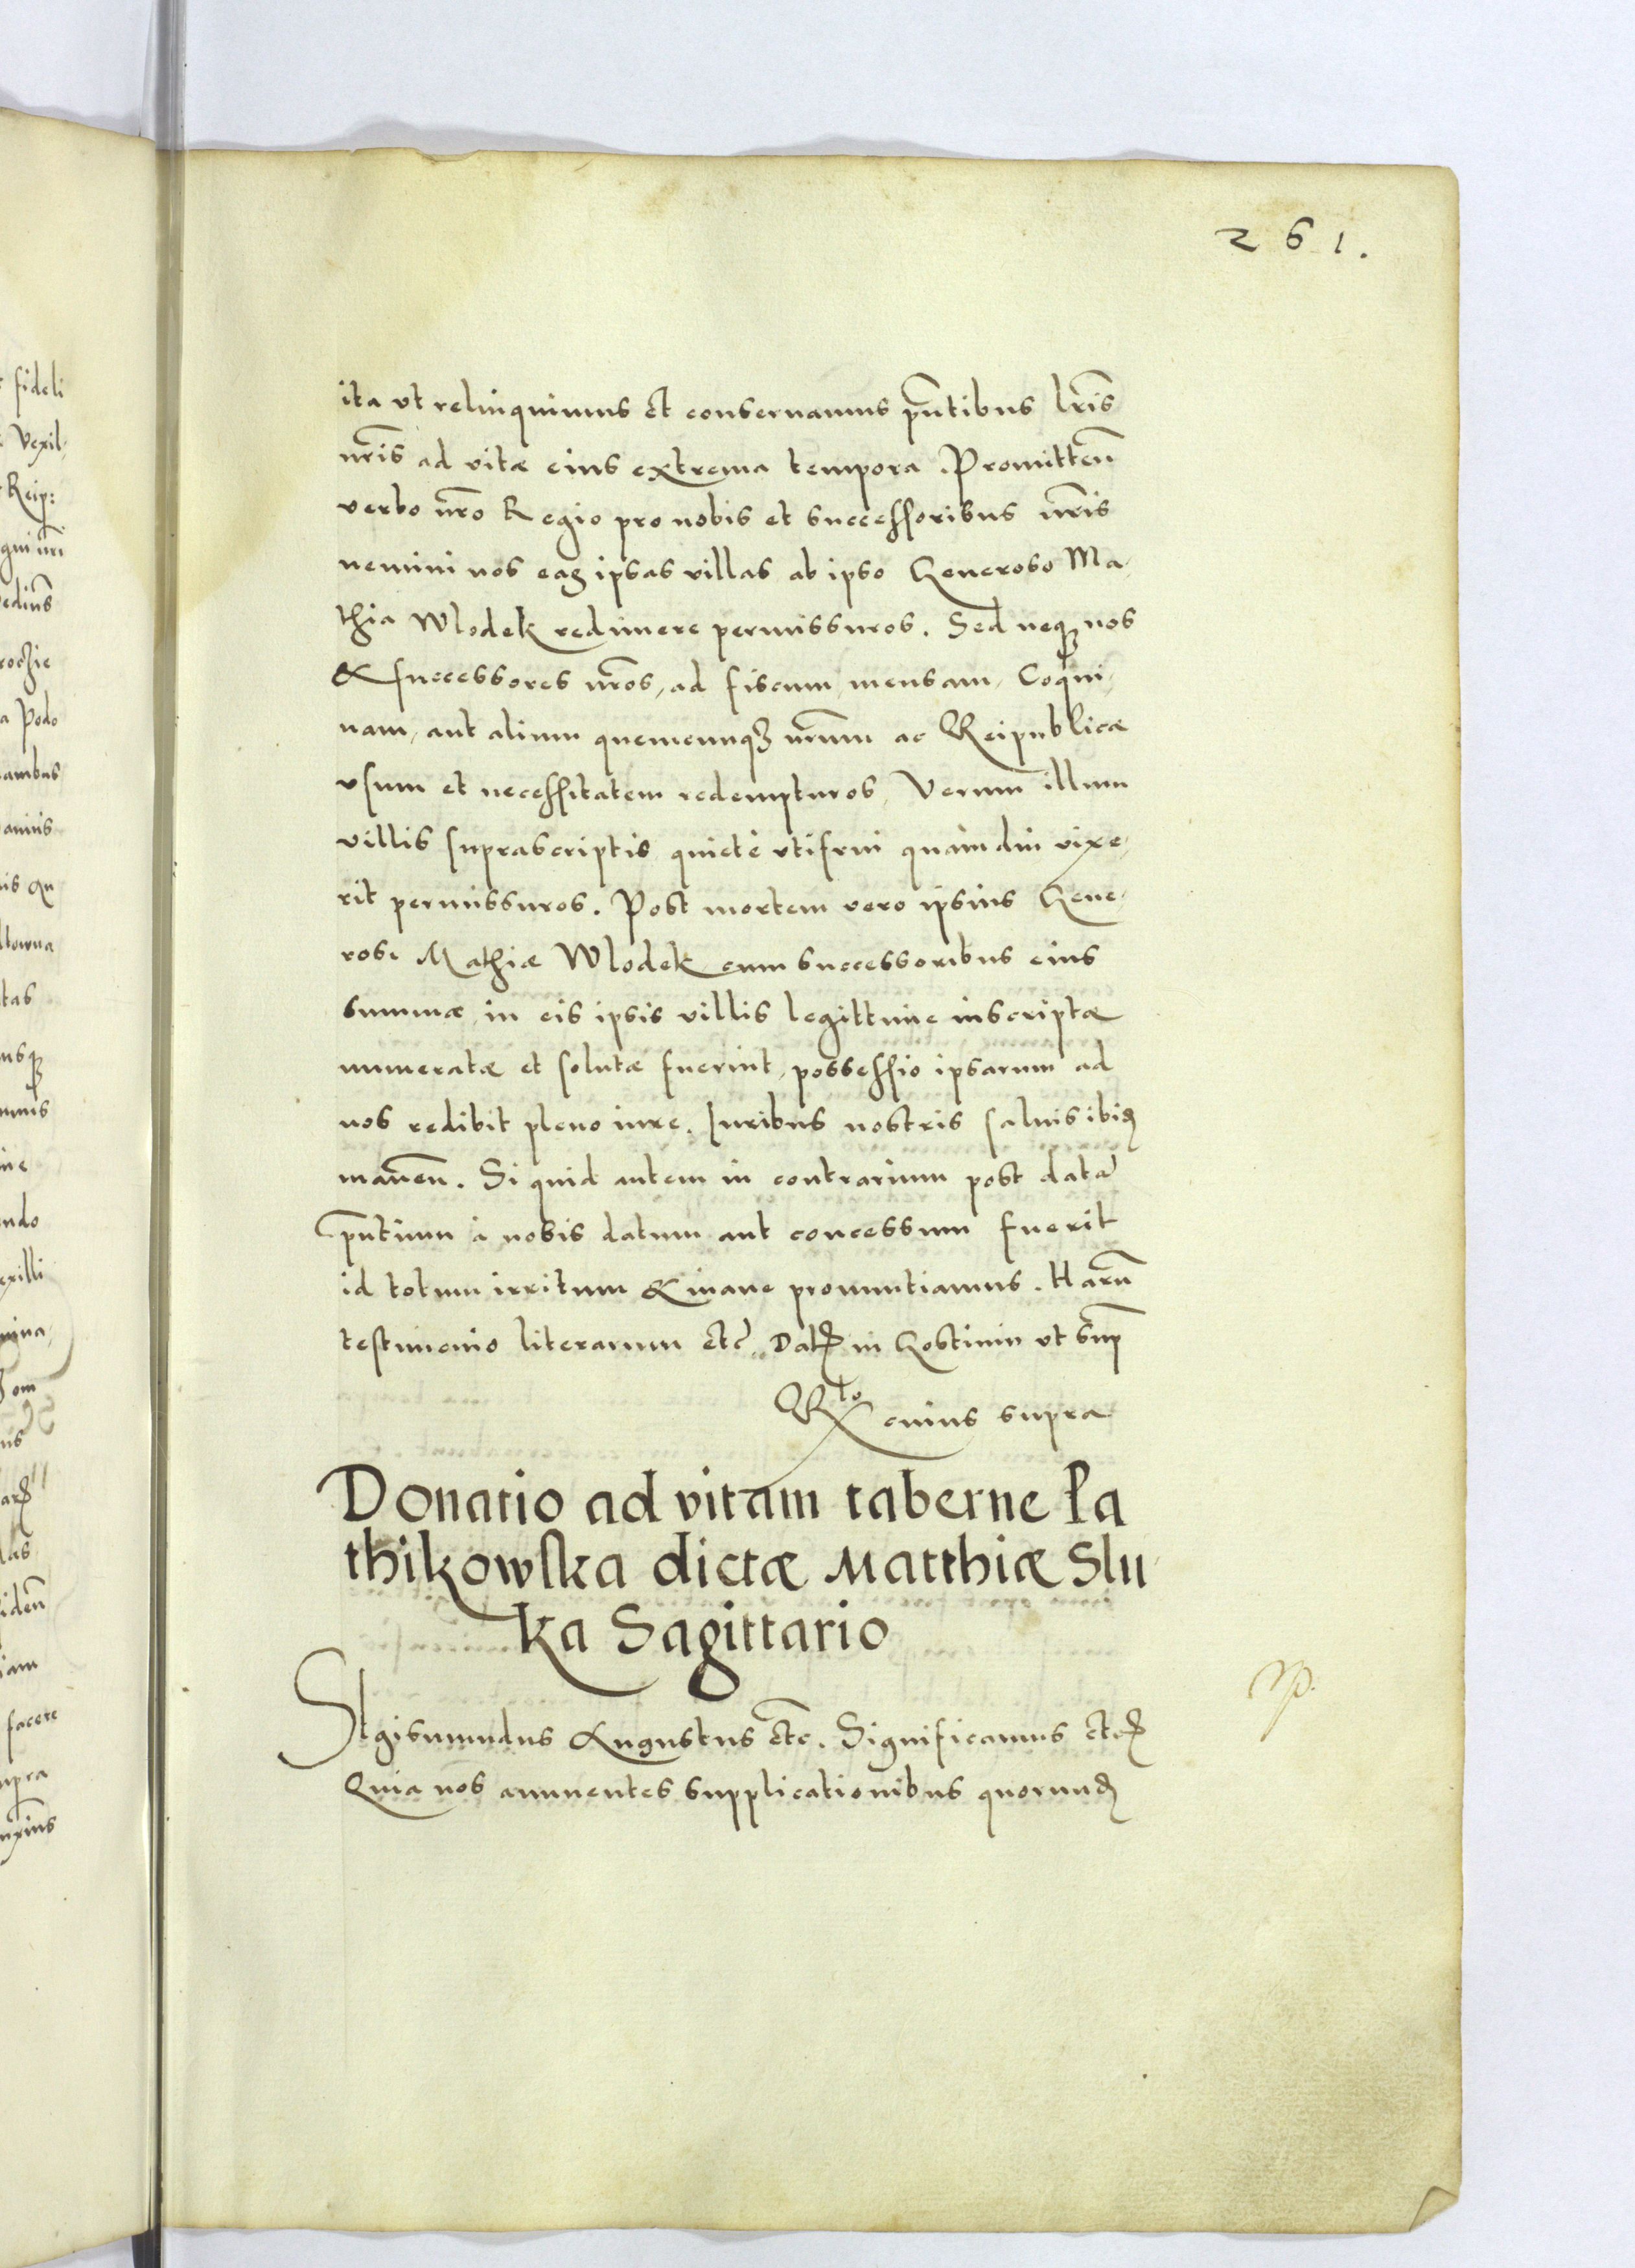 261.
ita ut relinquimus et conservamus pñtibus lr̃is
nr̃is ad vitæ eius extrema tempora. Promitteñ
verbo nr̃o Regio pro nobis et successoribus nr̃is
nemini nos eas ipsas villas ab ipso Generoso Ma,
thia Wlodek redimere permissuros. Sed neqꝫ nos
& successores nr̃os, ad fiscum, mensam, Coqui,
nam, aut alium quemcunqꝫ nr̃um ac Reipublicæ
usum et necessitatem redempturos, Verum illum
villis suprascriptis quietè utifrui quàmdiu vixe,
rit permissuros. Post mortem vero ipsius Gene,
rosi Mathiæ Wlodek cum successoribus eius
summæ, in eis ipsis villis legittime inscriptæ
numeratæ et solutæ fuerint, possessio ipsarum ad
nos redibit pleno iure. Iuribus nostris salvis ibid̃
maneñ. Si quid autem in contrarium post datã
pñtium à nobis datum aut concessum fuerit
id totum irritum & inane pronuntiamus. Harũ
testimonio literarum etc̃. Dat̃ in Gostinin ut sup̃
Rᵗᵒ cuius supra
Donatio ad vitam taberne Pa
thikowska dictæ Matthiæ Slu
ka Sagittario
Sigismundus Augustus etc̃. Significamus etc̃
Quia nos annuentes supplicationibus quorund̃